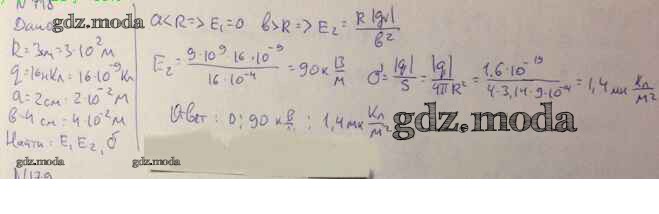 N 718
Дано
gdz.moda
R=3см=3·10²м
q=16нКл=16·10⁻⁹Кл
a=2см=2·10⁻²м
в=4см=4·10⁻²м
gdz.moda
Найти: E₁ E₂, б
N179
a<R=>E₁=0 в>R=>E₂= k|q|/в²
E₂= 9·10⁹·16·10⁻⁹/16·10⁻⁴ =90к В/м
σ= |q|/S = |q|/4πR² = 1,6·10⁻¹⁹/4·3,14·9·10⁻⁴ =1,4мк Кл/м²
Ответ: 0; 90 к В/м; 1,4мк Кл/м²
gdz.moda
gdz.moda
gdz.moda